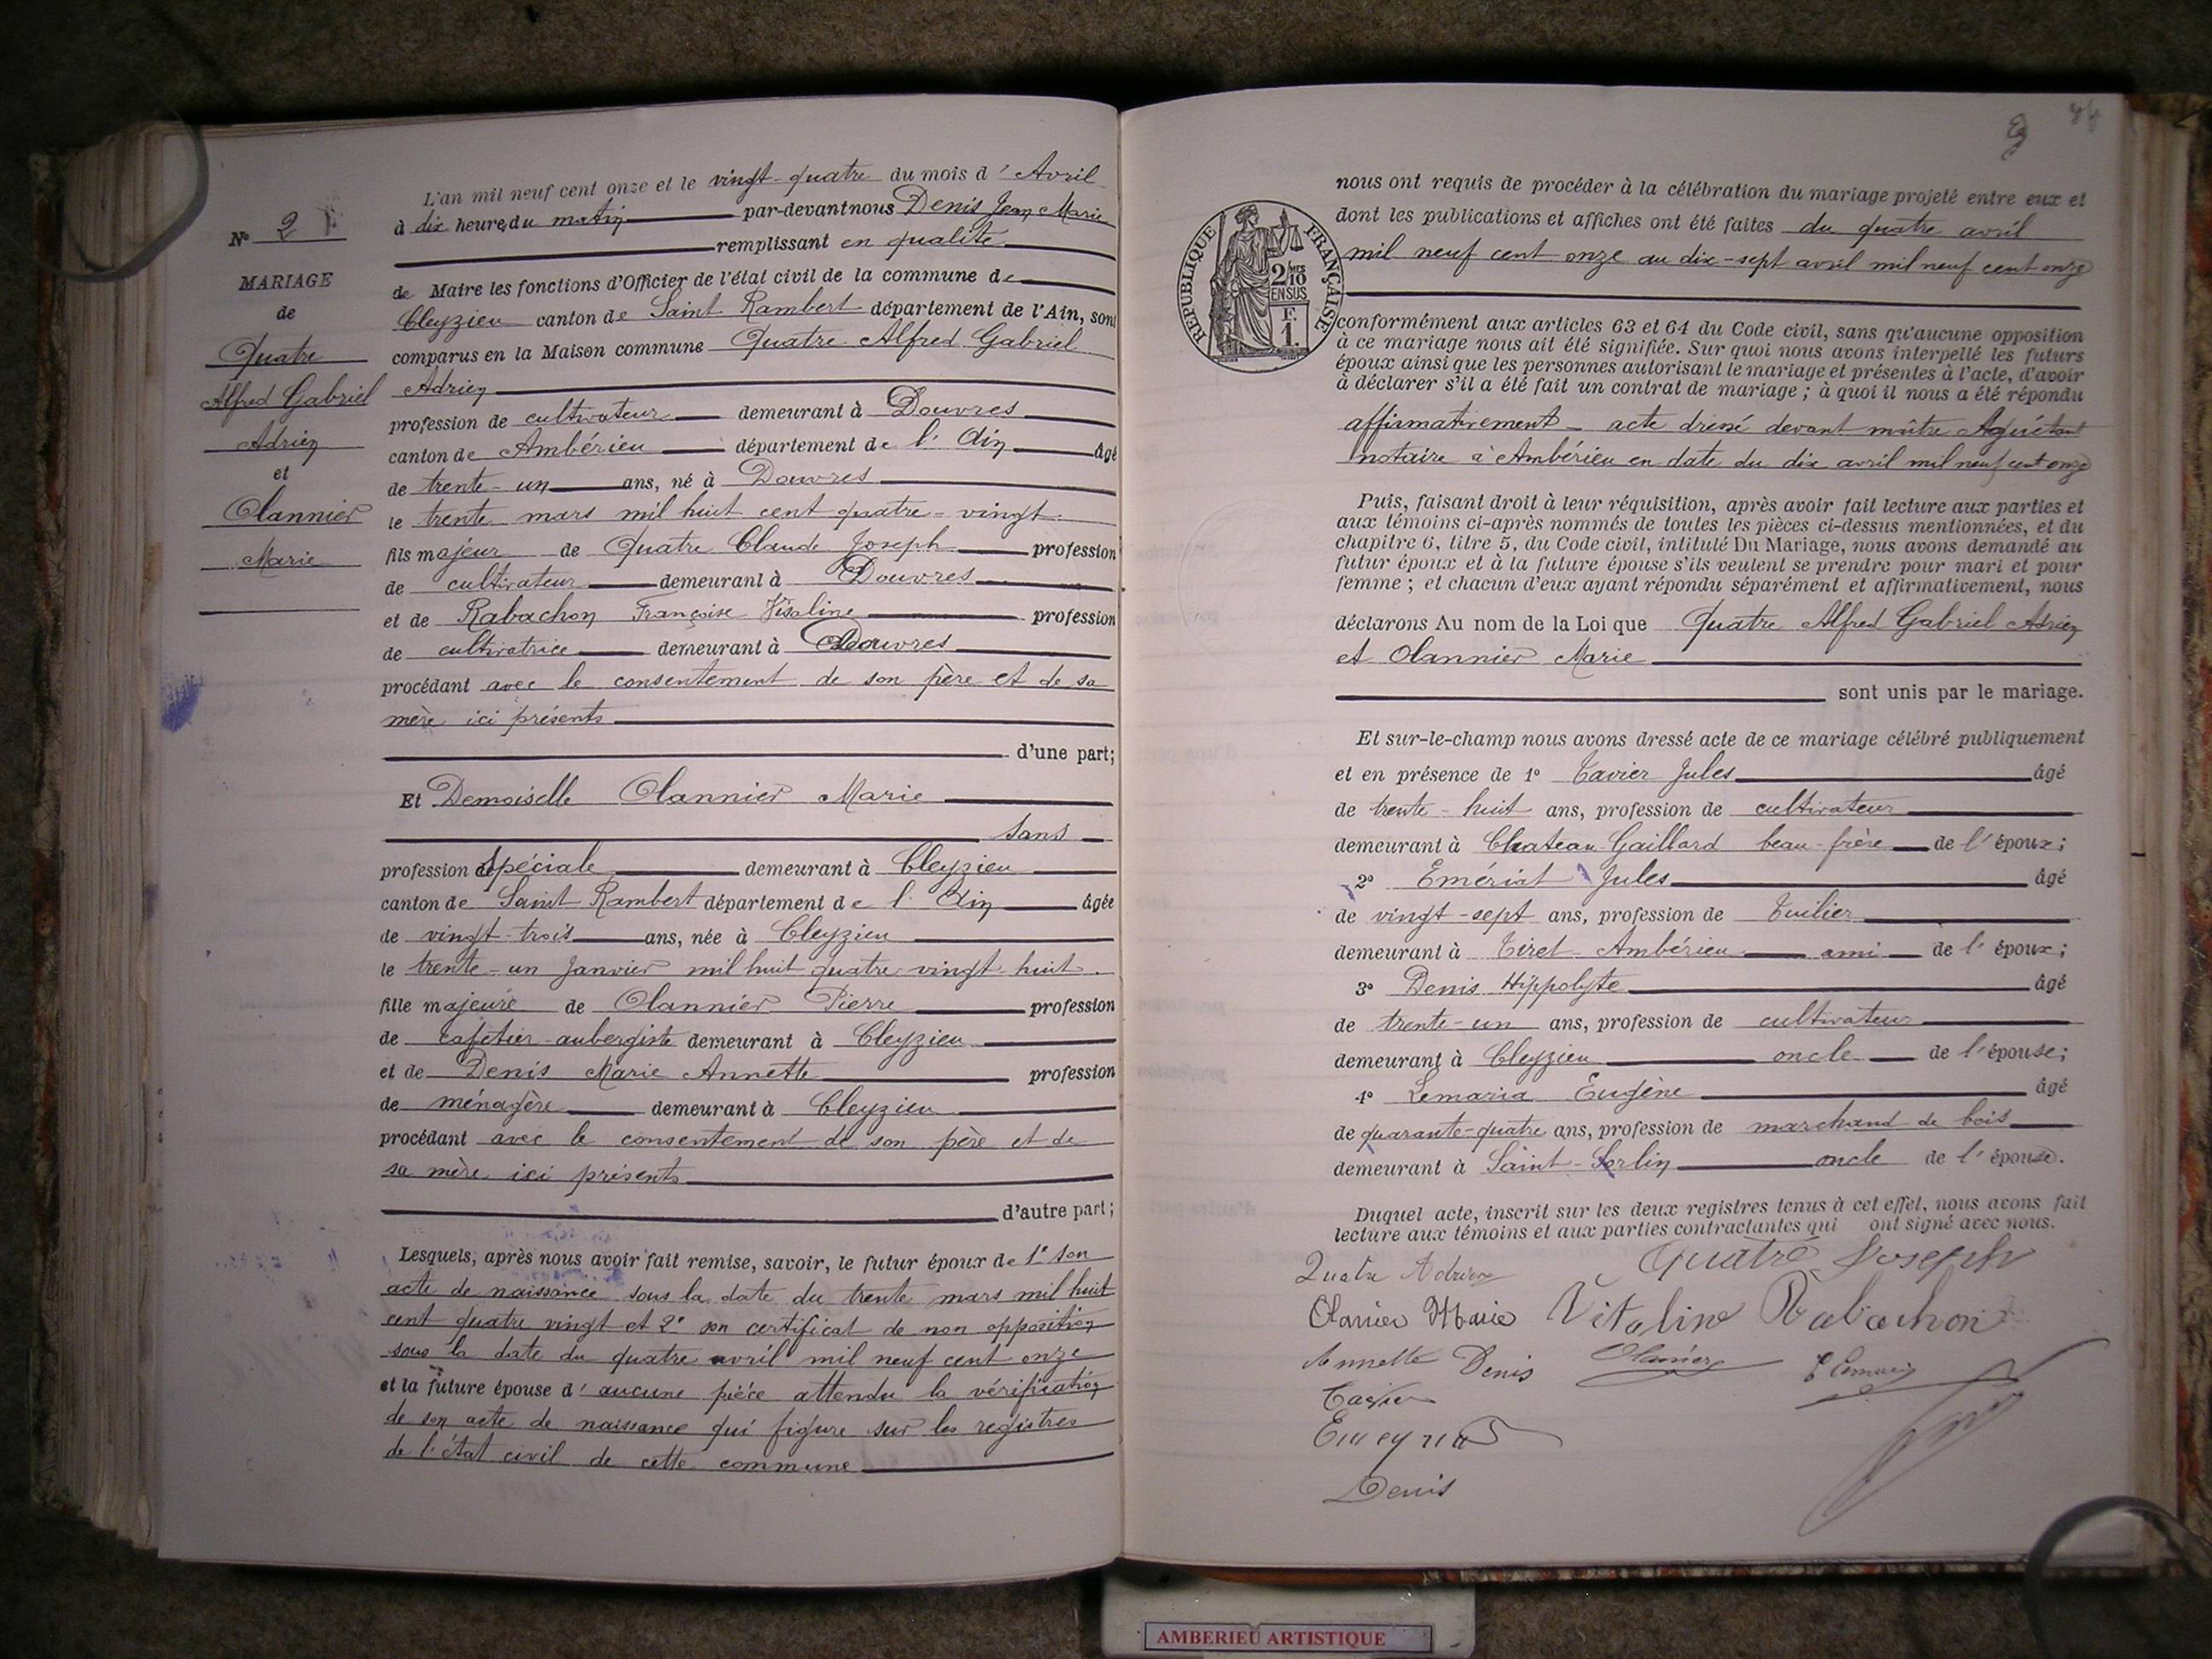 L'an mil neuf cent onze et le vingt-quatre du mois d'Avril
à dix heures du matin par-devant nous Denis Jean Marie
remplissant en qualité
de Maire les fonctions d'Officier de l'état civil de la commune de
Cleyzieu canton de Saint Rambert département de l'Ain, sont
comparus en la Maison commune Quatre Alfred Gabriel
Adrien
profession de cultivateur demeurant à Douvres
canton de Ambérieu département de l'Ain âgé
de trente-un ans, né à Douvres
le trente mars mil huit cent quatre-vingt
fils majeur de Quatre Claude Joseph profession
de cultivateur demeurant à Douvres
et de Rabachon Françoise Vitaline profession
de cultivatrice demeurant à Douvres
procédant avec le consentement de son père et de sa
mère ici présents
d'une part;
Et Demoiselle Olannier Marie
sans
profession spéciale demeurant à Cleyzieu
canton de Saint Rambert département de l'Ain âgée
de vingt-trois ans, née à Cleyzieu
le trente-un Janvier mil huit quatre-vingt-huit
fille majeure de Olannier Pierre profession
de cafetier-aubergiste demeurant à Cleyzieu
et de Denis Marie Annette profession
de ménagère demeurant à Cleyzieu
procédant avec le consentement de son père et de
sa mère ici présents
d'autre part;
Lesquels, après nous avoir fait remise, savoir, le futur époux de 1° son
acte de naissance sous la date du trente mars mil huit
cent quatre vingt et 2° son certificat de non opposition
sous la date du quatre avril mil neuf cent onze
et la future épouse d'aucune pièce attendu la vérification
de son acte de naissance qui figure sur les registres
de l'état civil de cette commune
N° 2
MARIAGE
de
Quatre
Alfred Gabriel
Adrien
et
Olannier
Marie
nous ont requis de procéder à la célébration du mariage projeté entre eux et
dont les publications et affiches ont été faites du quatre avril
mil neuf cent onze au dix-sept avril mil neuf cent onze
RÉPUBLIQUE FRANÇAISE
2/10 MES
EN SUS
F.
1.
conformément aux articles 63 et 64 du Code civil, sans qu'aucune opposition
à ce mariage nous ait été signifiée. Sur quoi nous avons interpellé les futurs
époux ainsi que les personnes autorisant le mariage et présentes à l'acte, d'avoir
à déclarer s'il a été fait un contrat de mariage ; à quoi il nous a été répondu
affirmativement - acte dressé devant maître
notaire à Ambérieu en date du dix avril mil neuf cent onze
Puis, faisant droit à leur réquisition, après avoir fait lecture aux parties et
aux témoins ci-après nommés de toutes les pièces ci-dessus mentionnées, et du
chapitre 6, titre 5, du Code civil, intitulé Du Mariage, nous avons demandé au
futur époux et à la future épouse s'ils veulent se prendre pour mari et pour
femme ; et chacun d'eux ayant répondu séparément et affirmativement, nous
déclarons Au nom de la Loi que Quatre Alfred Gabriel Adrien
et Olannier Marie
sont unis par le mariage.
Et sur-le-champ nous avons dressé acte de ce mariage célébré publiquement
et en présence de 1° Tavier Jules âgé
de trente-huit ans, profession de cultivateur
demeurant à Chateau-Gaillard beau-frère de l'époux;
2° Emériat Jules âgé
de vingt-sept ans, profession de Tuilier
demeurant à Tiret-Ambérieu ami de l'époux;
3° Denis Hippolyte âgé
de trente-un ans, profession de cultivateur
demeurant à Cleyzieu oncle de l'épouse;
4° Lemaria Eugène âgé
de quarante-quatre ans, profession de marchand de bois
demeurant à Saint-Sorlin oncle de l'épouse.
Duquel acte, inscrit sur les deux registres tenus à cet effet, nous avons fait
lecture aux témoins et aux parties contractantes qui ont signé avec nous.
Quatre Adrien Quatre Joseph
Olannier Marie Vitaline Rabachon
Annette Denis Olannier
Tavier
Denis
AMBERIEU ARTISTIQUE